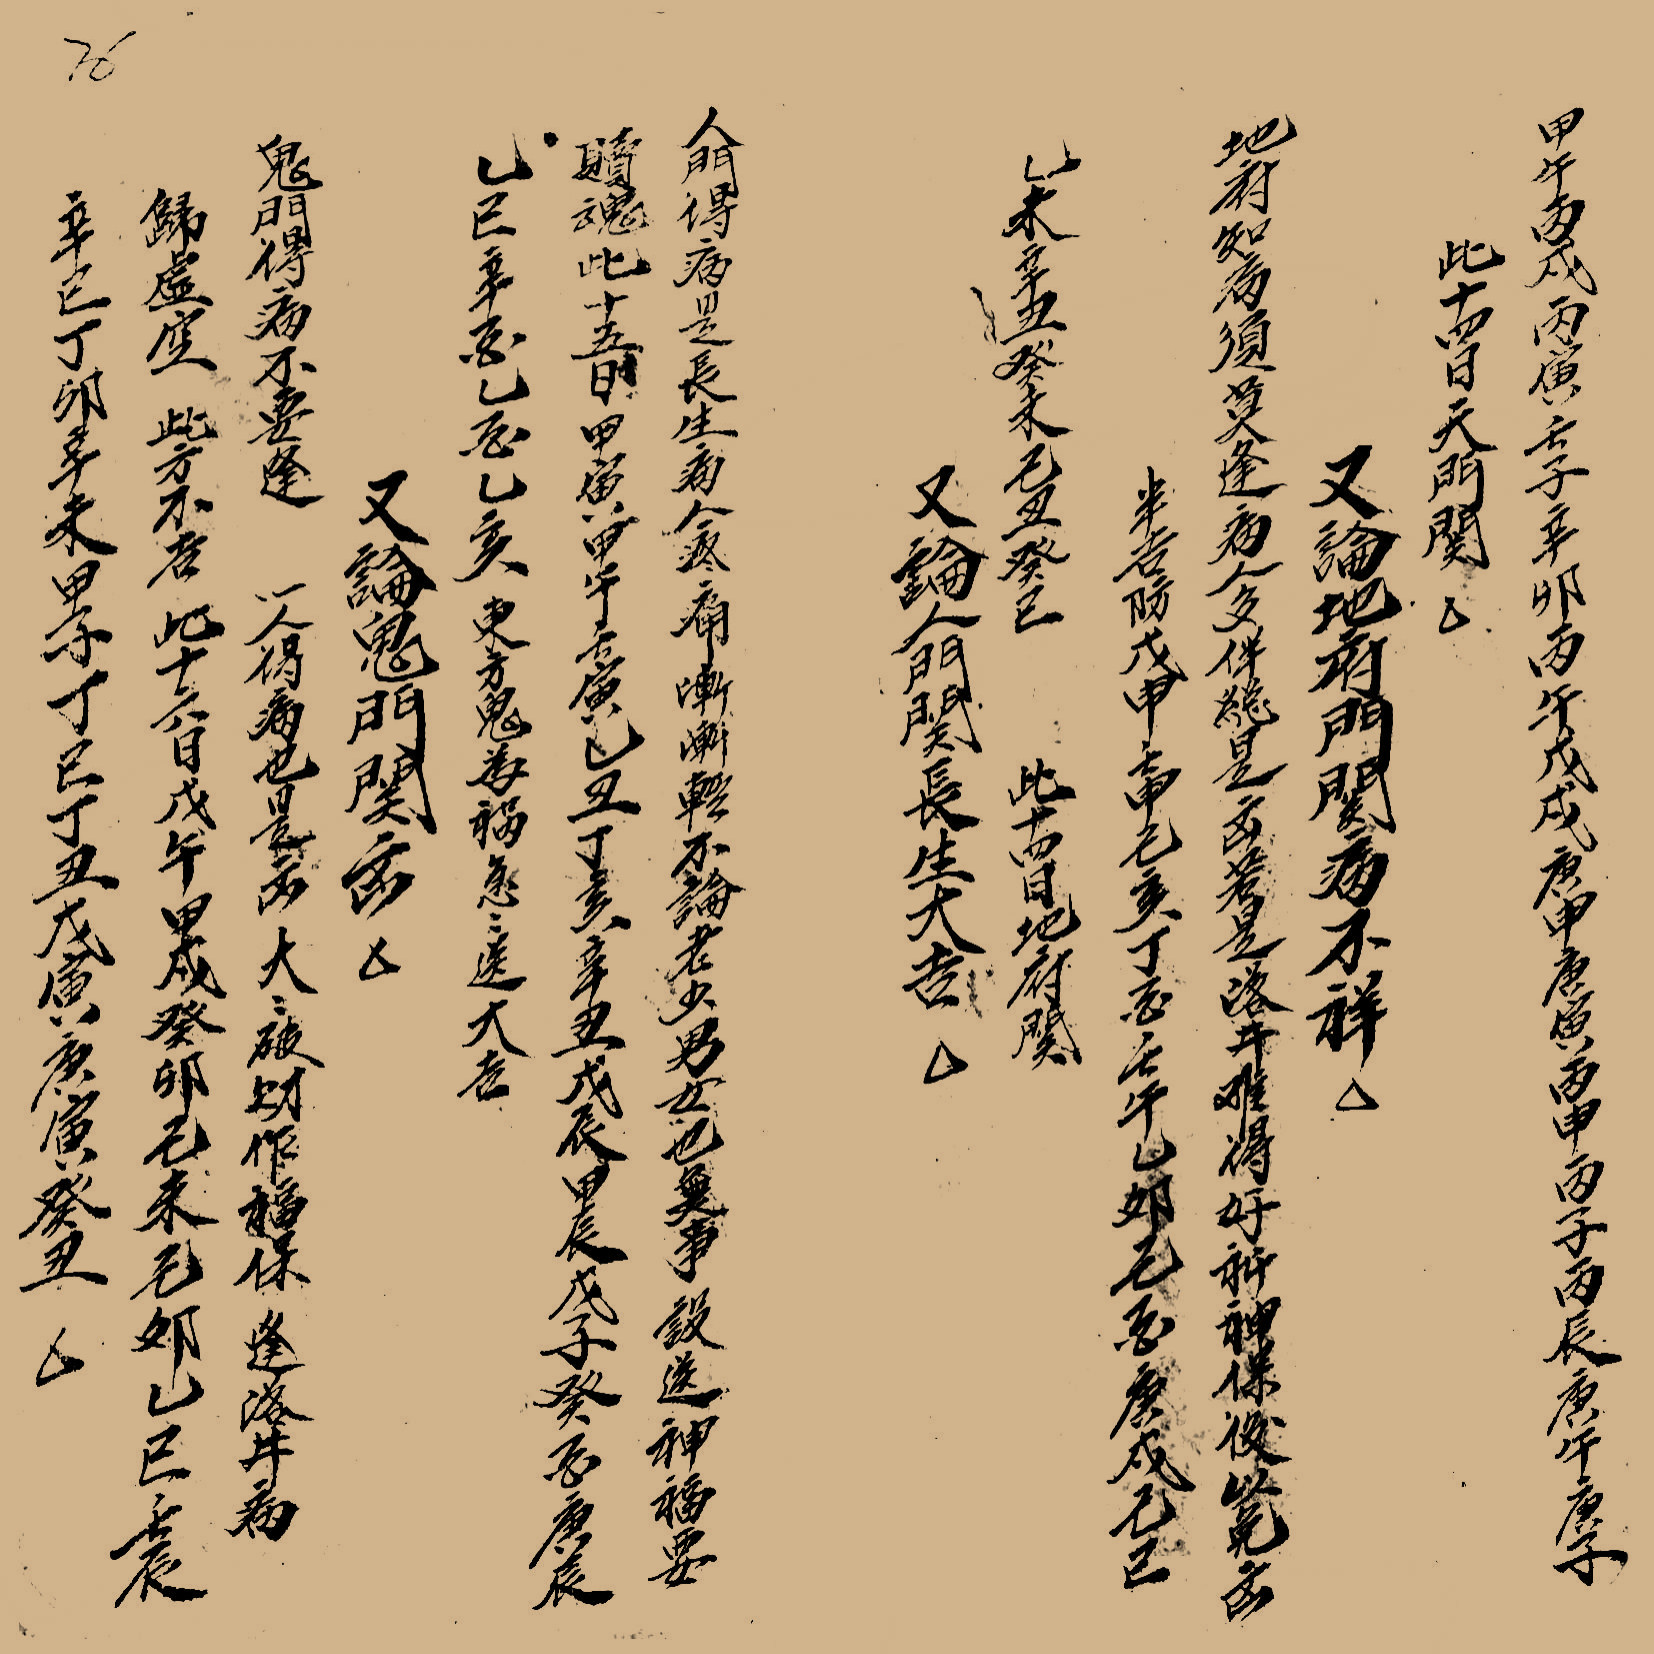 甲午丙戌丙寅壬子辛卯丙午戊戌庚申庚寅丙申丙子丙辰庚午庚子
此十四日天門関
又論地府門関病不祥
地府知病須莫逢病人多伴魂是凶若是落井难得好祈神保後必免凶
半吉防戊申壬申乙亥丁酉壬午乙卯己酉庚戌己巳
乙未辛丑癸未己丑癸巳 此十四日地府関
又論人門関長生大吉
人門得病是長生病人疼痛漸漸輕不論老少男女也無事 設送神福要
贖魂此十五日甲寅甲午壬寅乙丑丁亥辛丑戊辰甲辰戊子癸酉庚辰
乙巳辛酉乙酉乙亥 東方鬼為禍急〻送大吉
又論鬼門関凶
鬼門得病不要逢 一人得病也是凶 大〻破財作福保 逢落井病
歸虛空 此方不吉 此十六日戊午甲戌癸卯己未己卯乙巳壬辰
辛巳丁卯辛未甲子丁巳丁丑戊寅庚寅癸丑
76